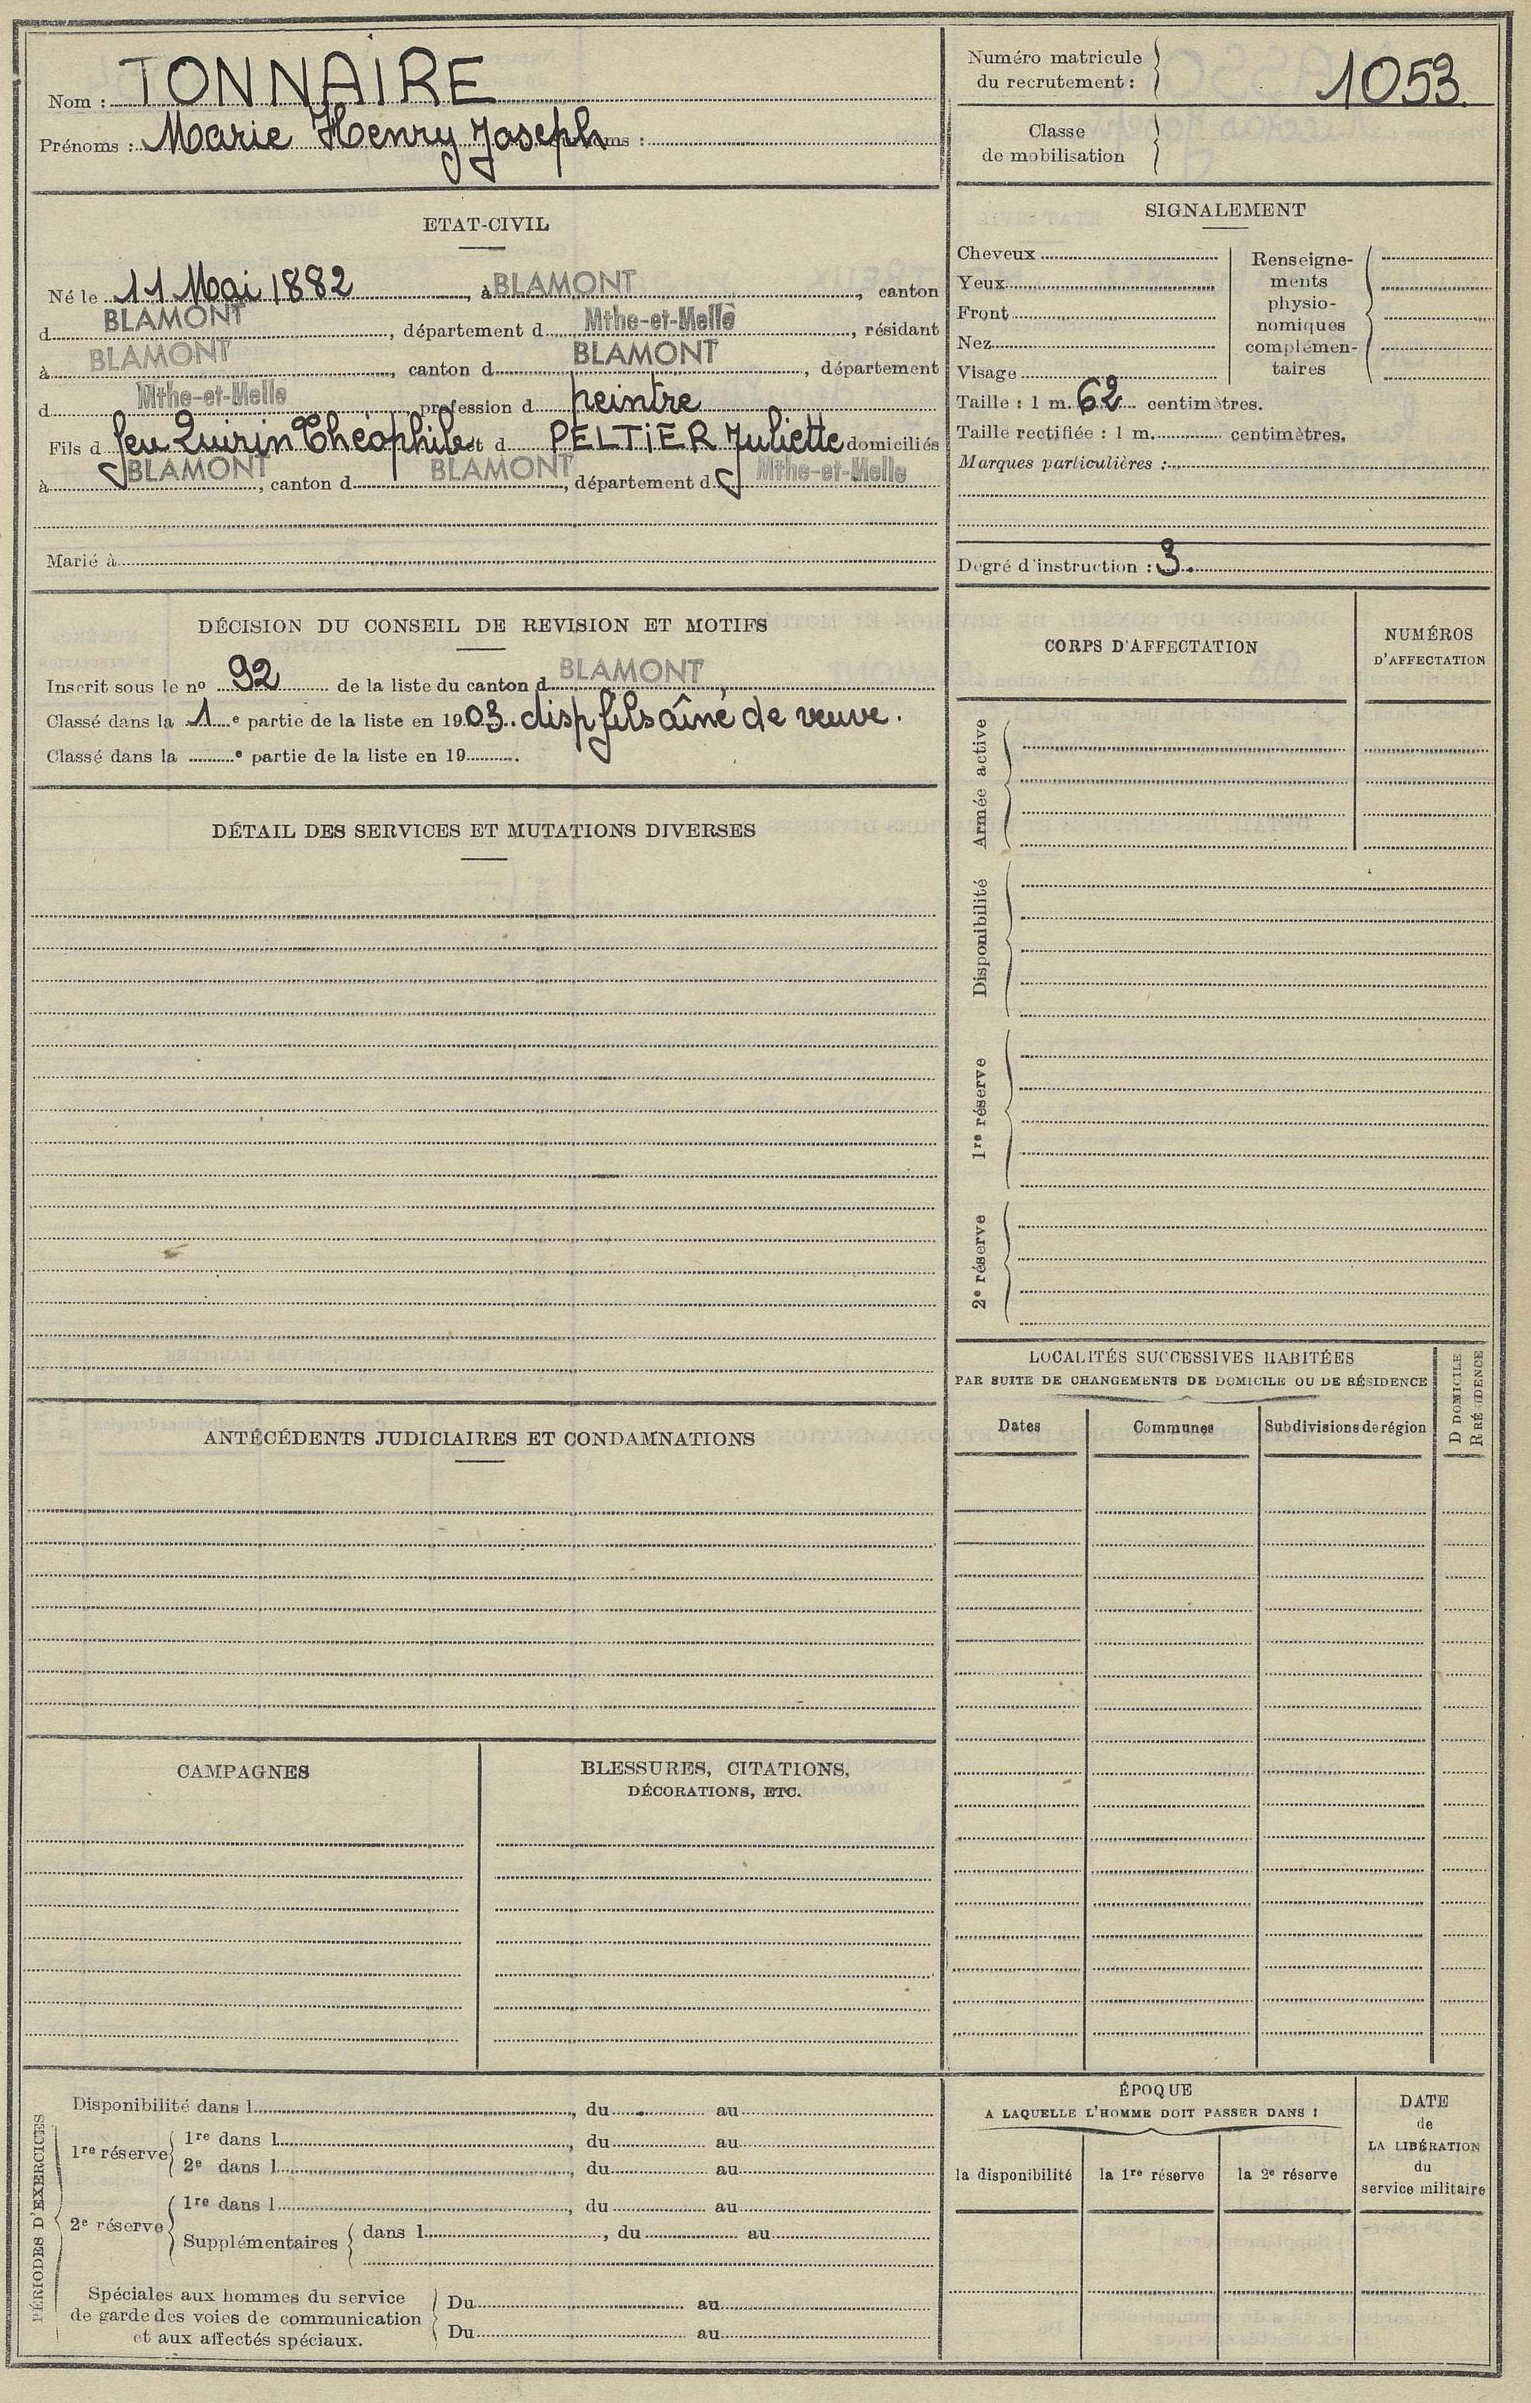 Nom : TONNAIRE
Prénoms : Marie Henry Joseph
Numéro matricule du recrutement : 1053.
Classe de mobilisation
ETAT-CIVIL
Né le 11 Mai 1882, à BLAMONT, canton
d BLAMONT, département d Mthe-et-Melle, résidant
à BLAMONT, canton d BLAMONT, département
d Mthe-et-Melle profession d peintre
Fils d feu Quirin Théophile et d PELTIER Juliette domiciliés
à BLAMONT, canton d BLAMONT, département d Mthe-et-Melle
Marié à
SIGNALEMENT
Cheveux
Yeux
Front
Nez
Visage
Renseigne-
ments
physio-
nomiques
complémen-
taires
Taille : 1 m. 62 centimètres.
Taille rectifiée : 1 m. centimètres.
Marques particulières :
Degré d'instruction : 3.
DÉCISION DU CONSEIL DE REVISION ET MOTIFS
Inscrit sous le nº 92 de la liste du canton d BLAMONT
Classé dans la 1e partie de la liste en 1903. disp fils aîné de veuve.
Classé dans la e partie de la liste en 19 .
DÉTAIL DES SERVICES ET MUTATIONS DIVERSES
CORPS D'AFFECTATION
NUMÉROS
D'AFFECTATION
Armée active
Disponibilité
1re réserve
2e réserve
LOCALITÉS SUCCESSIVES HABITÉES
PAR SUITE DE CHANGEMENTS DE DOMICILE OU DE RÉSIDENCE
Dates
Communes
Subdivisions de région
D DOMICILE
R RÉSIDENCE
ANTÉCÉDENTS JUDICIAIRES ET CONDAMNATIONS
CAMPAGNES
BLESSURES, CITATIONS,
DÉCORATIONS, ETC.
PÉRIODES D'EXERCICES
Disponibilité dans l , du au
1re réserve
1re dans l , du au
2e dans l , du au
2e réserve
1re dans l , du au
Supplémentaires dans l , du au
Spéciales aux hommes du service
de garde des voies de communication
et aux affectés spéciaux.
Du au
Du au
ÉPOQUE
A LAQUELLE L'HOMME DOIT PASSER DANS :
la disponibilité
la 1re réserve
la 2e réserve
DATE
de
LA LIBÉRATION
du
service militaire